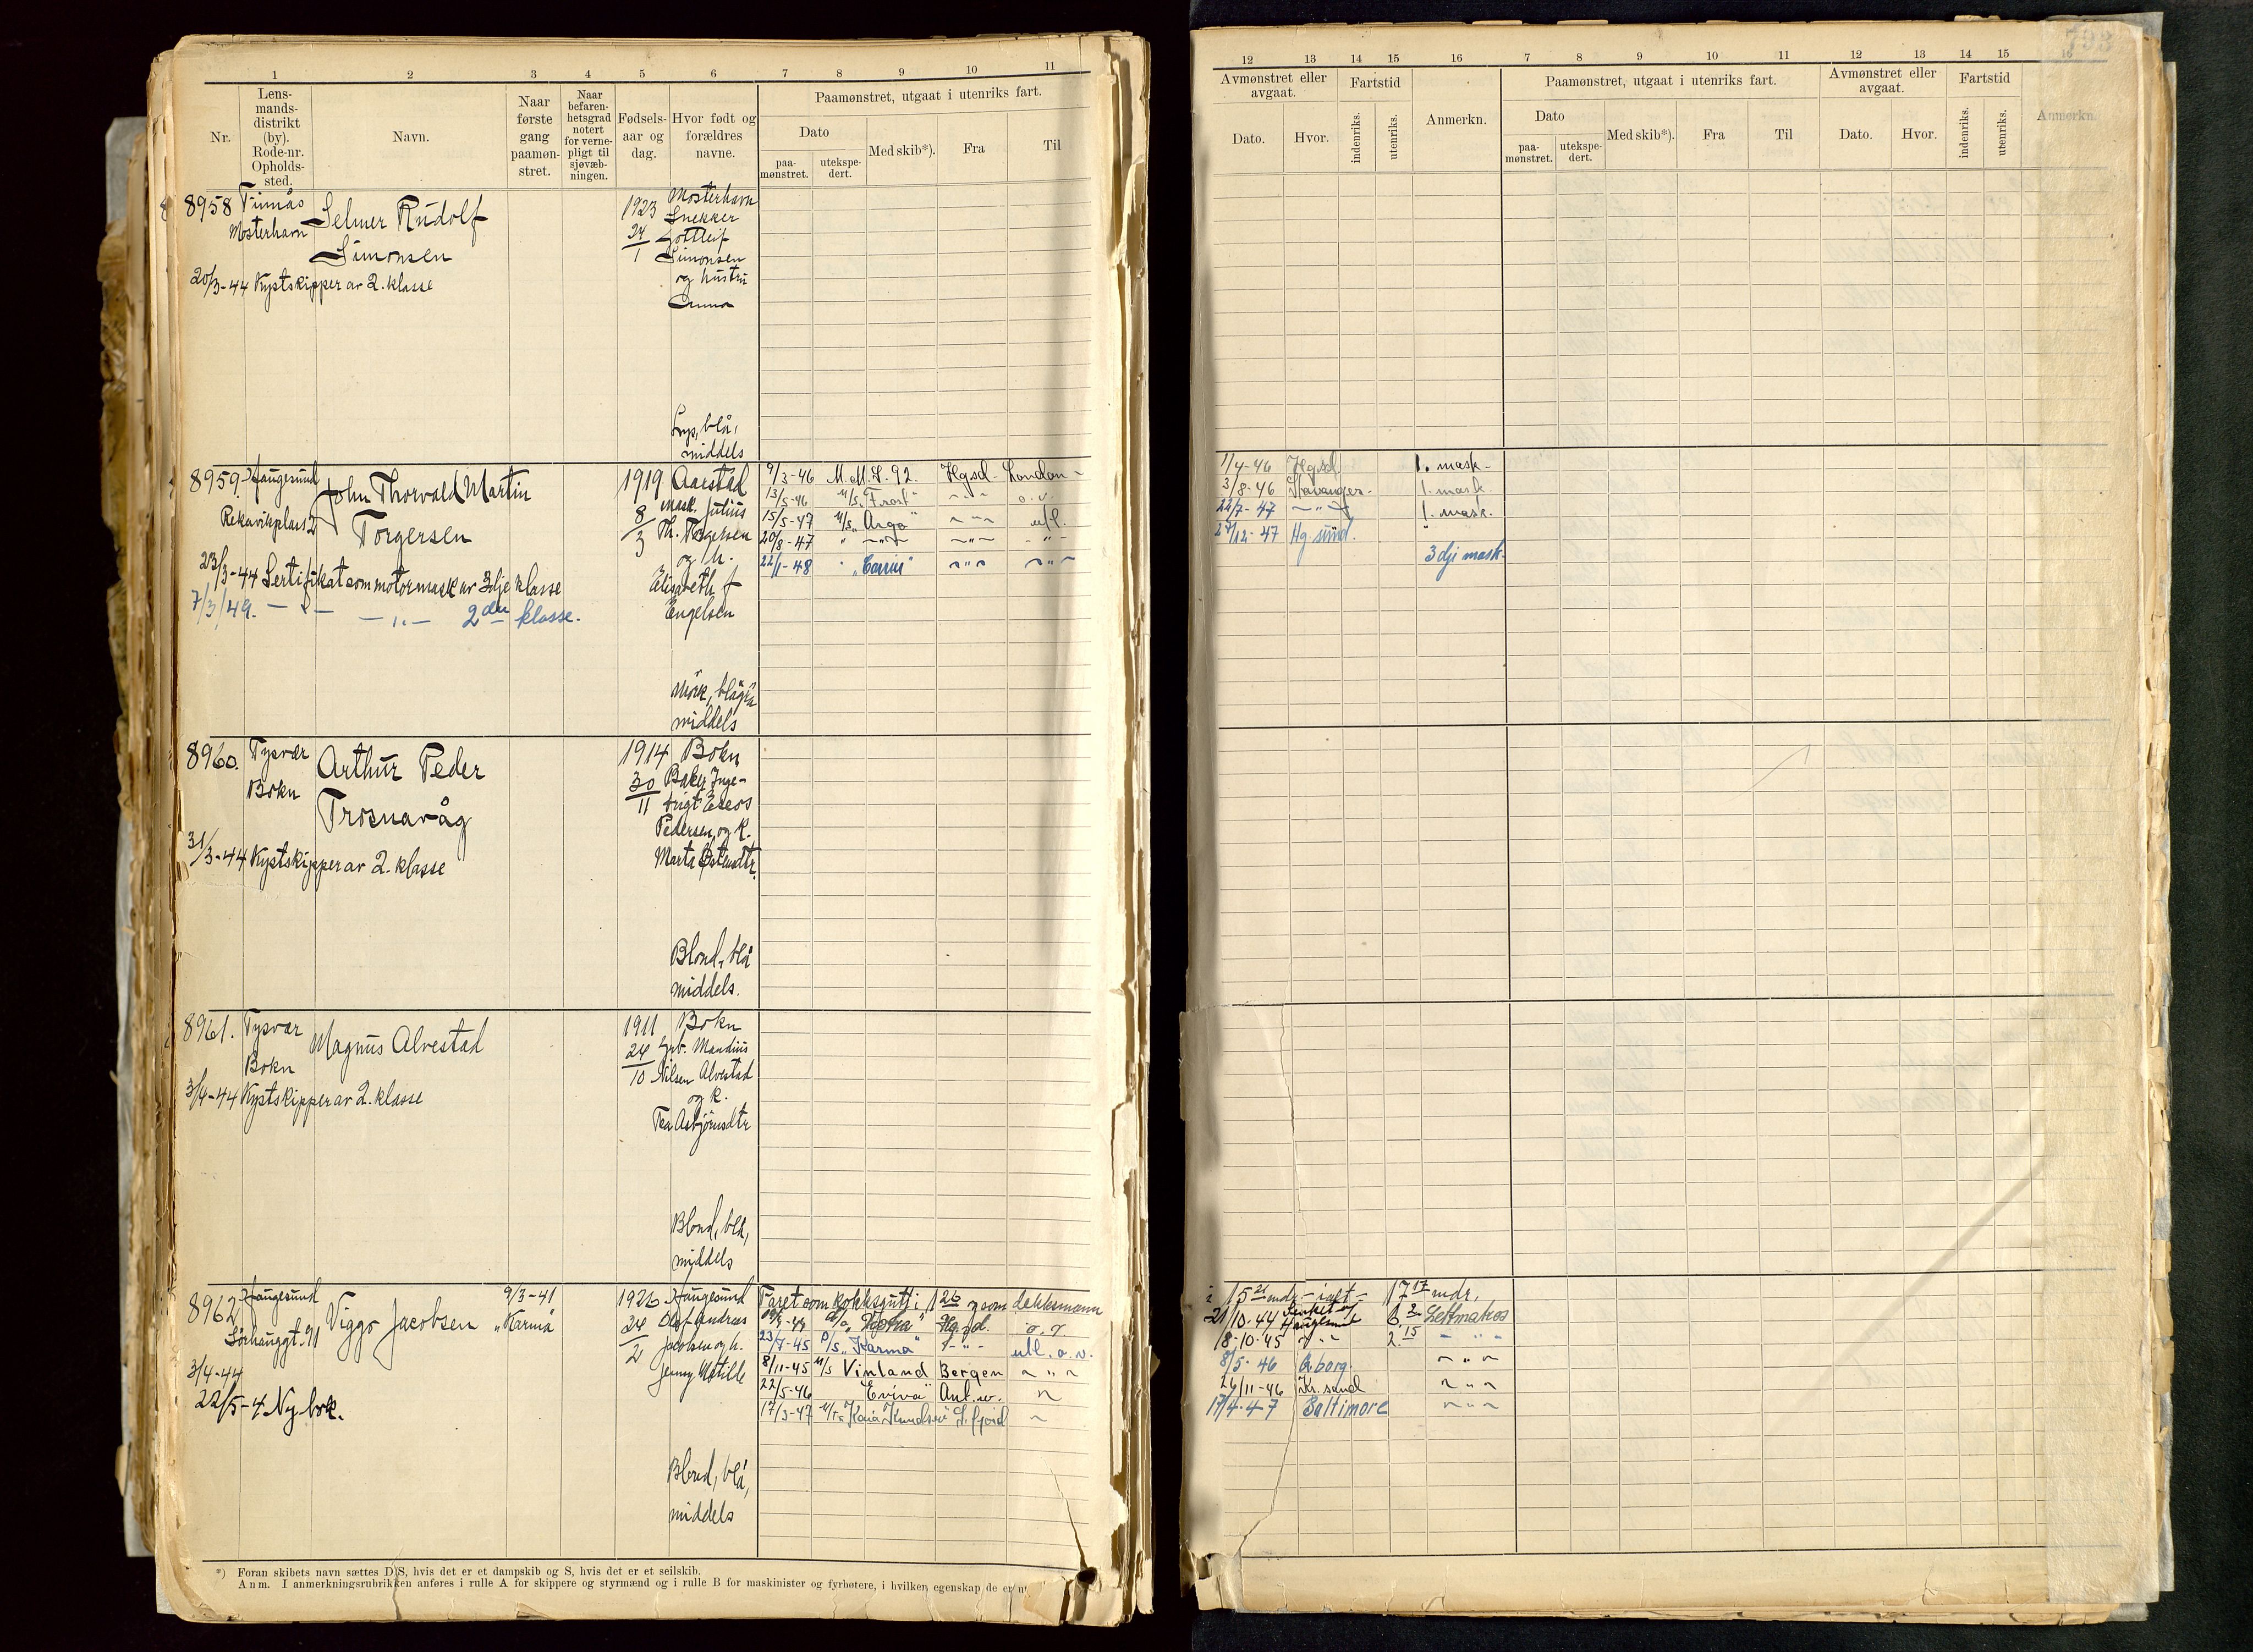 1 2 3 4 5 6 7 8 9 10 11
Nr.
Lens-
mands-
distrikt
(by).
Rode-nr.
Opholds-
sted.
Navn.
Naar
første
gang
paamøn-
stret.
Naar
befaren-
hetsgrad
notert
for verne-
pligt til
sjøvæb-
ningen.
Fødsels-
aar og
dag.
Hvor født og
forældres
navne.
Paamønstret, utgaat i utenriks fart.
Dato
paa-
mønstret.
utekspe-
dert.
Med skib*).
Fra
Til
8958 Finnås
Mosterhavn
Selmer Rudolf
Simonsen
20/3-44 Kystskipper av 2. klasse
1923
24/1
Mosterhavn
Snekker
Gottleif
Simonsen
og hustru
Anna
Lys, blå,
middels
8959. Haugesund
Rekavikplass 2
John Thorvald Martin
Torgersen
23/3-44 Sertifikat som motormask av 3dje klasse
7/3/49. — " — — " — 2den klasse.
1919
8/3
Aarstad
Mask. Julius
Th. Torgersen
og h.
Elisabeth f
Engelsen
Mørk, blågrå
middels
9/3-46 M.M.S. 92. Hgsd- London -
13/5-46 M/s "Frost" — " — o.v.
15/5-47 M/s "Argo" — " — utl.
20/8-47 " — " — — " — - " -
22/1-48 — " — — " —
8960. Tysvær
Bokn
Arthur Peder
Trosnavåg
31/3-44 Kystskipper av 2. klasse
1914
30/11
Bokn
Pedersen, og k.
Marta
Blond, blå
middels.
8961. Tysvær
Bokn
Magnus Alvestad
3/4-44 Kystskipper av 2. klasse
1911
24/10
Bokn
Grb. Mandius
Nilsen Alvestad
og k.
Tea Asbjørnsdtr
Blond, blå,
middels
8962 Haugesund
Sørhauggt. 91
Viggo Jacobsen
9/3-41
"Karmå
3/4-44
22/5-4 Ny bok.
1926
24/2
Haugesund
Olaf Andreas
Jacobsen og h.
Jenny Matille
Blond, blå,
middels
Faret som kokksgutt i 1 26 og som dekksmann
Hgsd. o.v.
23/7-45 D/s "Karmå" — " — utl. o.v.
8/11-45 M/s Vinland Bergen — " —
22/5-46 "Eviva" Ant.w. "
17/3-47 M/T "Kaia Knudsen" S.fjord —
*) Foran skibets navn sættes D/S, hvis det er et dampskib og S, hvis det er et seilskib.
Anm. I anmerkningsrubrikken anføres i rulle A for skippere og styrmænd og i rulle B for maskinister og fyrbøtere, i hvilken egenskap de er
793
12 13 14 15 16 7 8 9 10 11 12 13 14 15 16
Avmønstret eller
avgaat.
Dato.
Hvor.
Fartstid
indenriks.
utenriks.
Anmerkn.
Paamønstret, utgaat i utenriks fart.
Dato
paa-
mønstret.
utekspe-
dert.
Med skib*).
Fra
Til
Avmønstret eller
avgaat.
Dato.
Hvor.
Fartstid
indenriks.
utenriks.
Anmerkn.
11/4-46 Hgsd 1. mask-
3/8-46 Stavanger- 1. mask
22/7-47 — " — 1. mask.
27/12-47 Hg.sund. "
3dje mask-
i 15 21 mdr. - ialt - 17 17 mdr.
21/10-44 Senket af Haugesund 6. 2 Lettmatros
18-10-45 — " — 2. 15 — " —
8/5-46 Gborg. — " —
26/11-46 Kr.sand — " —
17/4-47 Baltimore — " —